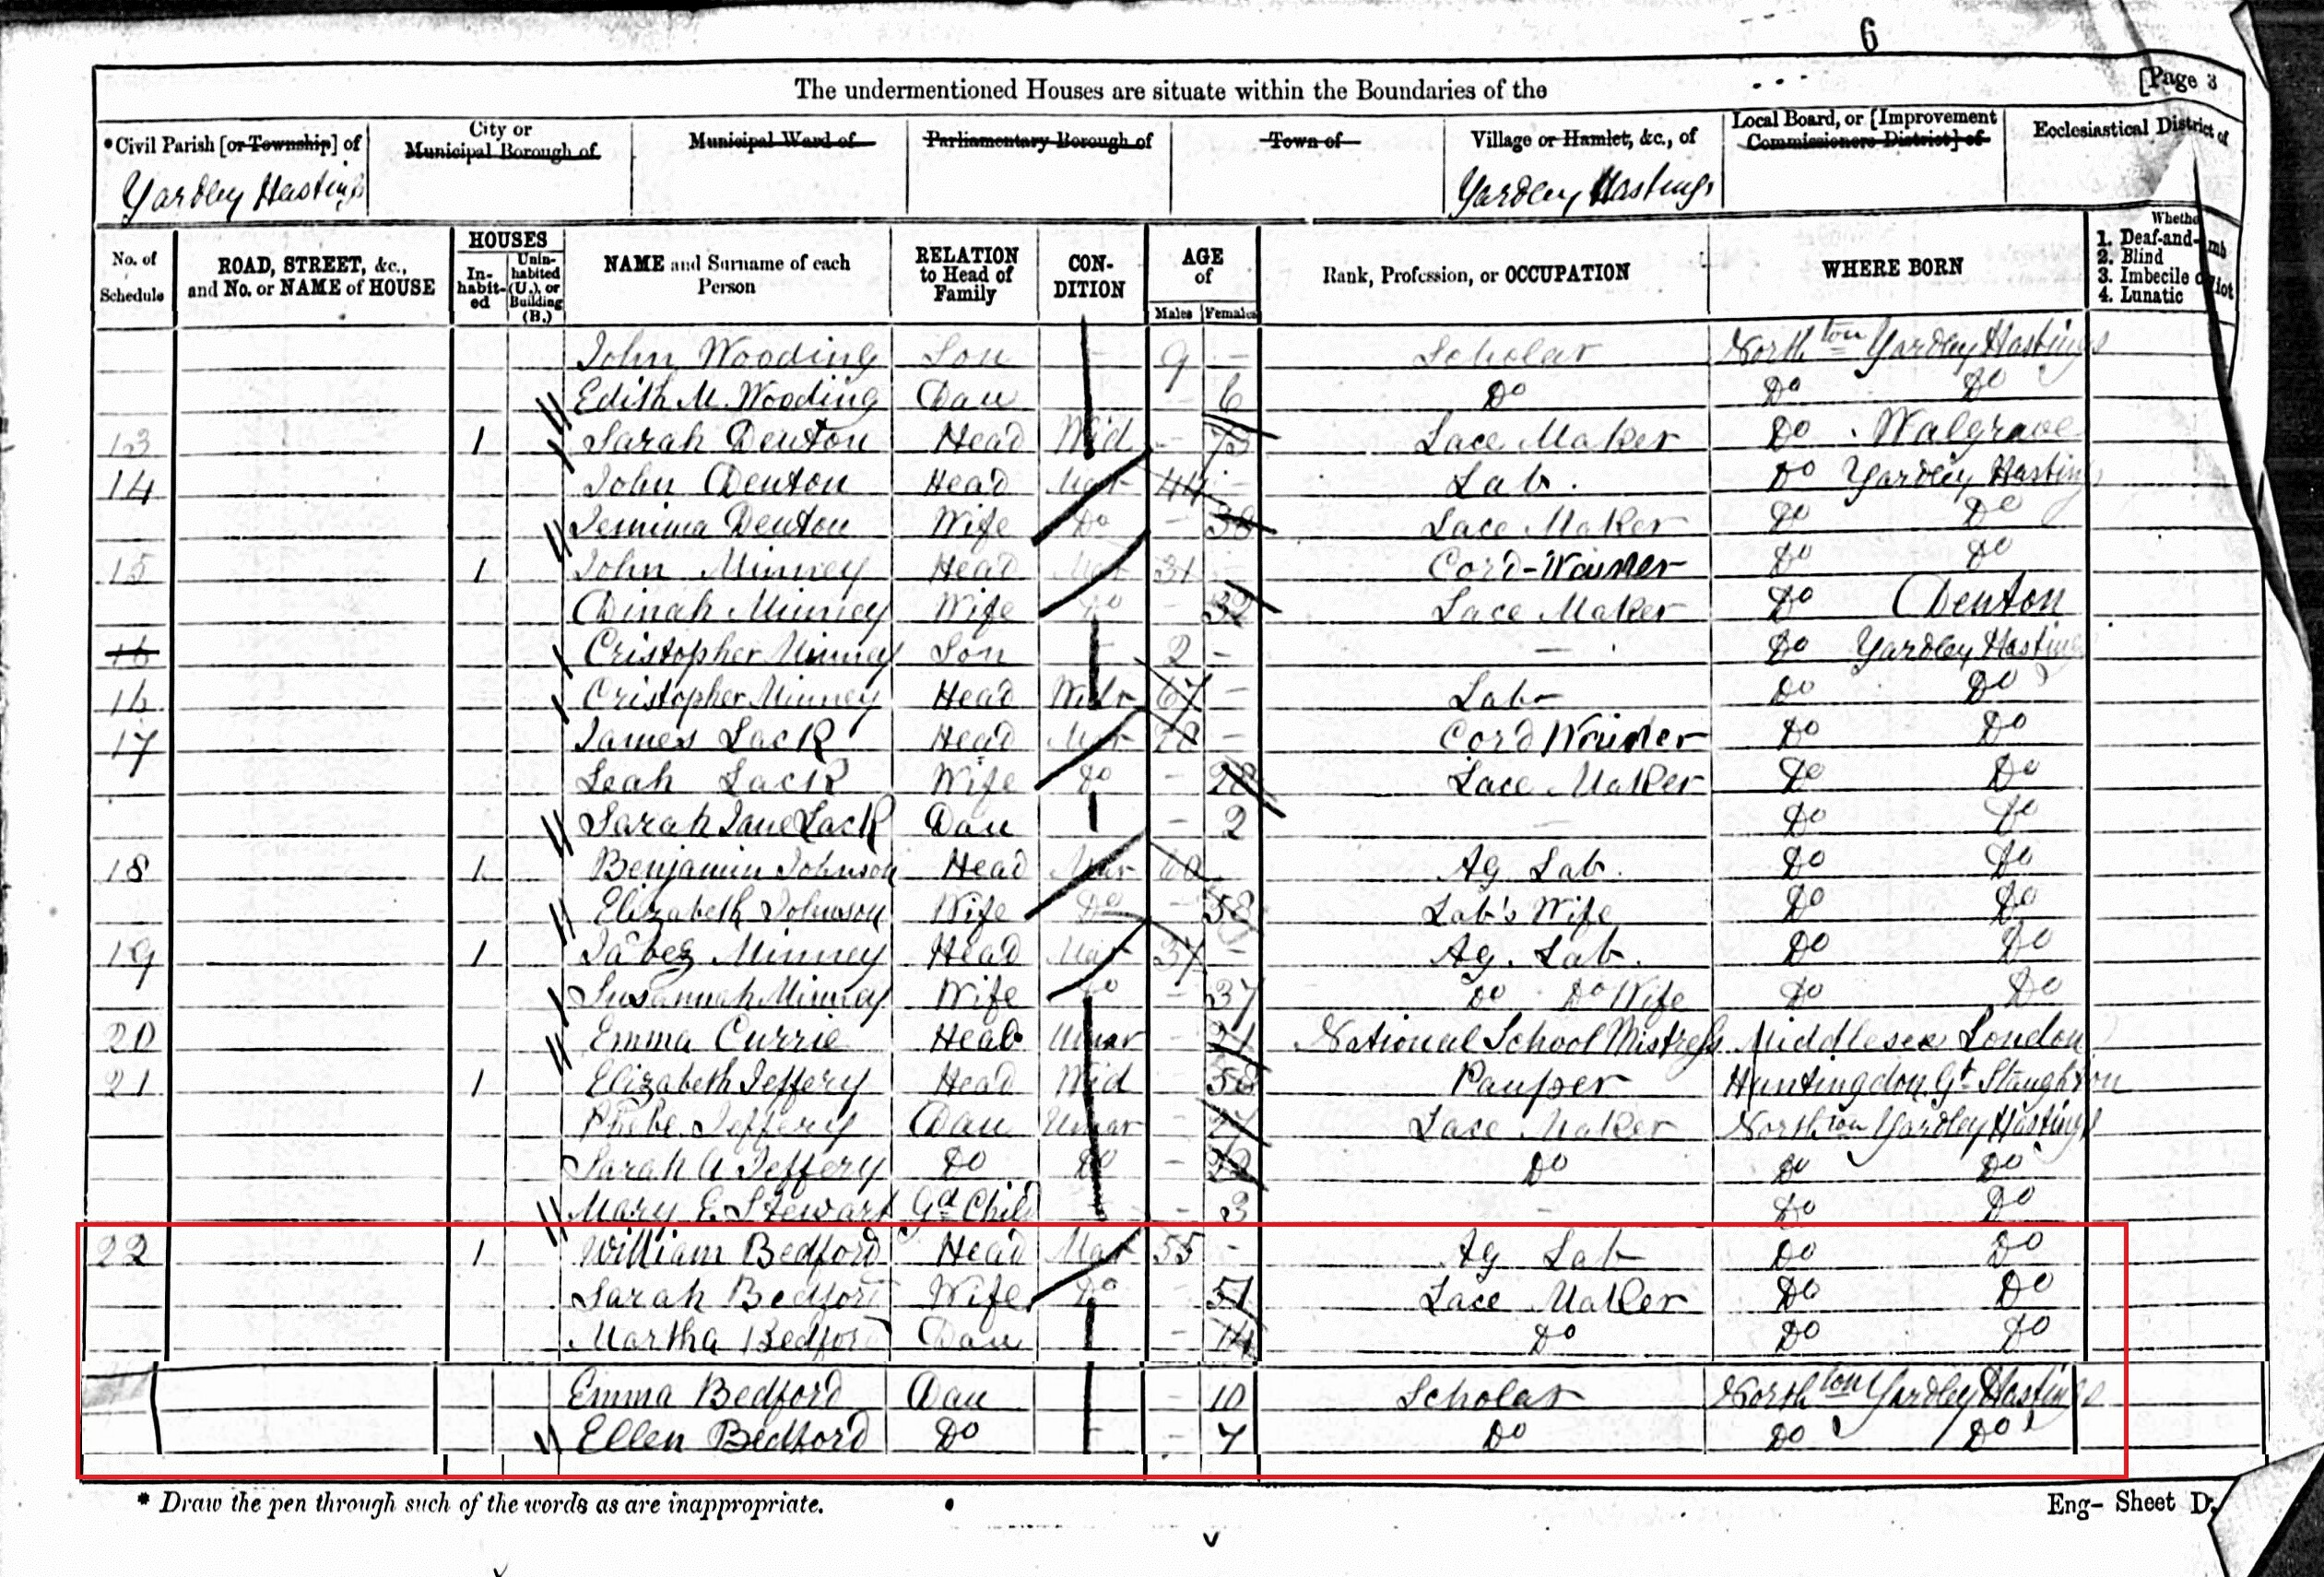 6
The undermentioned Houses are situate within the Boundaries of the [Page 3
*Civil Parish [or Township] of City or Municipal Borough of Municipal Ward of Parliamentary Borough of Town of Village or Hamlet, &c., of Local Board, or [Improvement Commissioners District] of Ecclesiastical District of
Yardley Hastings Yardley Hastings
No. of Schedule ROAD, STREET, &c., and No. or NAME of HOUSE HOUSES In-habit-ed Unin-habited (U.), or Building (B.) NAME and Surname of each Person RELATION to Head of Family CON-DITION AGE of Males Females Rank, Profession, or OCCUPATION WHERE BORN 1. Deaf-and- 2. Blind 3. Imbecile 4. Lunatic
John Wooding Son - 9 - Scholar North ton Yardley Hastings
Edith M. Wooding Dau 6 Do Do Do
13 1 Sarah Denton Head Wid - 73 Lace Maker Do Walgrave
14 John Denton Head Mar 44 - Lab. Do Yardley Hastings
Jemima Denton Wife Do - 38 Lace Maker Do Do
15 1 John Minney Head Mar 31 - Cord-Wainer Do Do
Dinah Minney Wife Do - 32 Lace Maker Do Denton
16 Cristopher Minney Son - 2 - - Do Yardley Hastings
16 Cristopher Minney Head Widr 67 - Lab Do Do
17 James Lack Head Mar 28 - Cord Wainer Do Do
Leah Lack Wife Do - 28 Lace Maker Do Do
Sarah Jane Lack Dau - 2 - Do Do
18 1 Benjamin Johnson Head Mar 60 Ag Lab. Do Do
Elizabeth Johnson Wife Do - 58 Lab's Wife Do Do
19 1 Jabez Minney Head Mar 37 - Ag. Lab. Do Do
Susannah Minney Wife Do - 37 Do Do Wife Do Do
20 Emma Currie Head Unmar 21 National School Mistress Middlesex London
21 1 Elizabeth Jeffery Head Wid Pauper Huntingdon Gt Staughton
Phebe Jeffery Dau Unmar - 27 Lace Maker North ton Yardley Hastings
Sarah A Jeffery Do Do - 22 Do Do Do
Mary E. Stewart Gd Child - - 3 - Do Do
22 1 William Bedford Head Mar 55 - Ag Lab Do Do
Sarah Bedford Wife Do - 51 Lace Maker Do Do
Martha Bedford Dau - 14 Do Do Do
Emma Bedford Dau - 10 Scholar North ton Yardley Hastings
Ellen Bedford Do - - 7 Do Do Do
* Draw the pen through such of the words as are inappropriate. Eng- Sheet D.